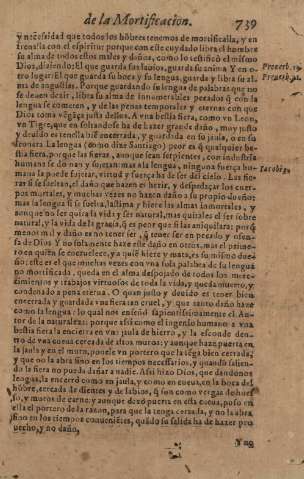 de la Mortificacion. 739
y necessidad que todos los hõbres tenemos de mortificalla, y en
frenalla con el espiritu; porque con este cuydado libra el hombre
su alma de todos estos males y daños, como lo testificò el mismo
Dios, diziendo: El que guarda sus labios, guarda su anima. Y en o-
Prouerb. 13.
tro lugar: El que guarda su boca y su lengua, guarda y libra su al-
Prouerb. 21.
ma de angustias. Porque guardando su lengua de palabras que no
se deuen dezir, libra su alma de innumerables pecados que con la
lengua se cometen, y de las penas temporales y eternas con que
Dios toma vengãça justa dellos. A vna bestia fiera, como vn Leon,
vn Tigre, que en soltandose ha de hazer grande daño, muy justo
y deuido es tenella biẽ encerrada, y guardada en su jaula, o en su
leonera. La lengua (como dize Santiago) peor es que qualquier bes-
tia fiera, porque las fieras, aunque sean serpientes, con industria
humana se doman y sujetan, mas a la lengua, ninguna fuerça hu-
Iacobi 3.
mana la puede sujetar, virtud y fuerça ha de ser del cielo. Las fie-
ras si se sueltan, el daño que hazen es herir, y despedaçar los cuer-
pos mortales, y muchas vezes no hazen daño a su propio dueño:
mas la lengua si se suelta, lastima y hiere las almas inmortales, y
aunque no ser quita la vida y ser natural, mas quitales el ser sobre
natural, y la vida de la gracia, que es peor que si las aniquilara: porq̃
menos mal y daño es no tener ser, que tener ser en pecado y ofen-
sa de Dios. Y no solamente haze este daño en otros, mas el prime-
ro en quien se encruelece, y a quiẽ hiere y mata, es su mismo due-
ño: este es el que muchas vezes con vna sola palabra de su lengua
no mortificada, queda en el alma despojado de todos los mere-
cimientos y trabajos virtuosos de toda la vida, y queda muerto, y
condenado a pena eterna. O quan justo y deuido es tener bien
encerrada y guardada vna fiera tan cruel, y que tanto daño haze
como la lengua: lo qual nos enseñò sapientissimamente el Au-
tor de la naturaleza: porque assi como el ingenio humano a vna
bestia fiera la encierra en vna jaula de hierro, y la esconde den-
tro de vna cueua cercada de altos muros: y aunque haze puerta en
la jaula y en el muro, ponele vn portero que la tẽga bien cerrada,
y que no la abra sino en los tiempos necessarios, y quando salien-
do la fiera no pueda dañar a nadie. Assi hizo Dios, que dandonos
lengua, la encerrò como en jaula, y como en cueua, en la boca del
hõbre, cercada de dientes y de labios, que son como vergas de hues-
so, y muros de carne: y aunque dexò puerta en esta cueua, puso en
ella el portero de la razon, para que la tenga cerrada, y no la abra
sino en los tiempos conuenientes, quãdo su salida ha de hazer pro
uecho, y no daño.
Y no